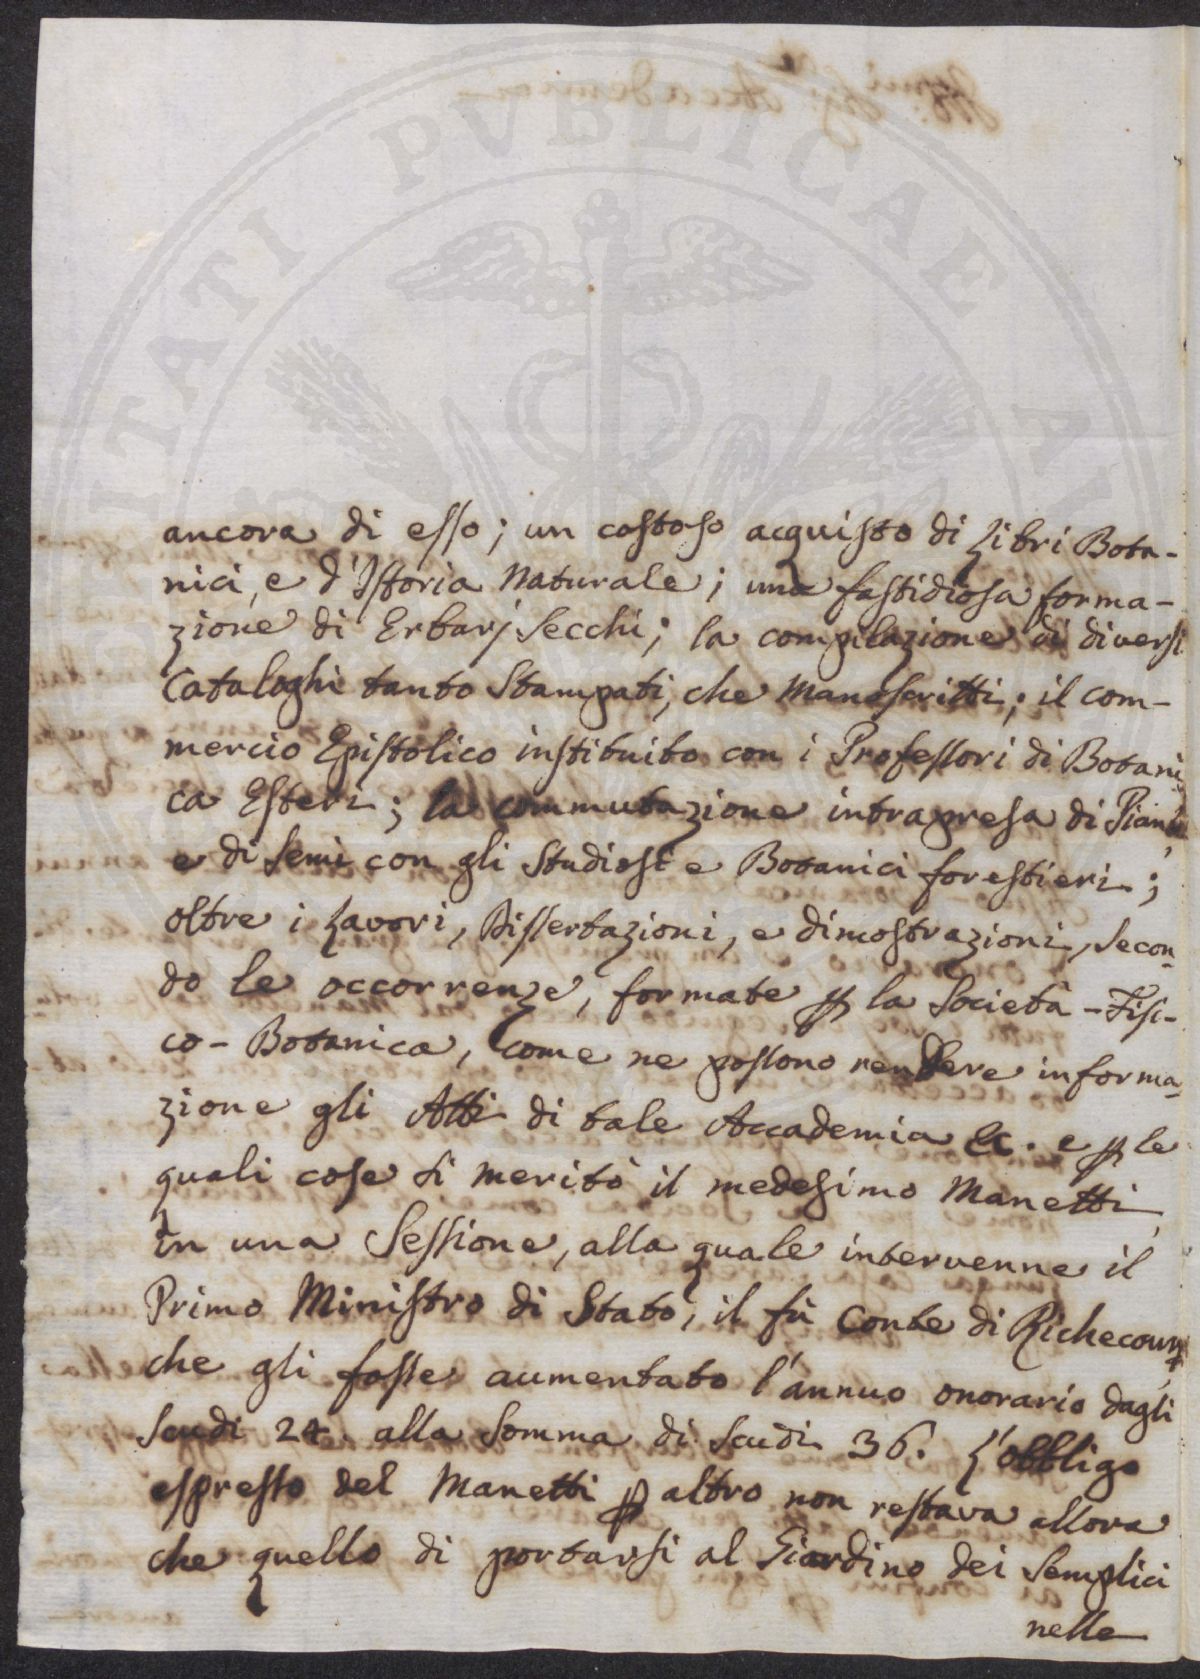 PVBLICAE
ITATI
ancora di esso; un costoso acquisto di Libri Bota-
nici, e d'Istoria Naturale; una fastidiosa forma-
zione di Erbarj Secchi; la compilazione di diversi
Cataloghi tanto Stampati, che Manoscritti; il com-
mercio Epistolico instituito con i Professori di Botani
ca Esteri; la commutazione intrapresa di Piante
e di Semi con gli Studiosi e Botanici forestieri;
oltre i Lavori, Dissertazioni, e dimostrazioni, secon-
do le occorrenze, formate ꝑ la Società-Fisi-
co-Botanica, come ne possono rendere informa-
zione gli Atti di tale Accademia &c. e ꝑ le
quali cose si meritò il medesimo Manetti,
in una Sessione, alla quale intervenne il
Primo Ministro di Stato, il fù Conte di Richecourt,
che gli fosse aumentato l'annuo onorario dagli
Scudi 24. alla Somma di Scudi 36. L'obbligo
espresso del Manetti ꝑ altro non restava allora
che quello di portarsi al Giardino dei Semplici
nelle